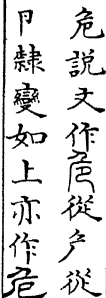 危説文作危從厃從
卪隸變如上亦作危